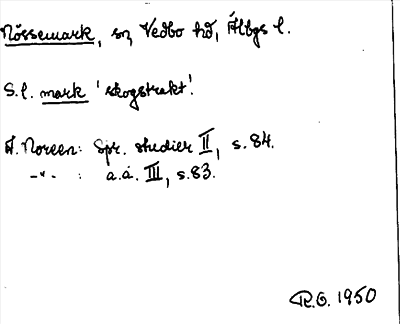 Nössemark, sn, Vedbo hd, Älbgs l.
S.l. mark 'skogstrakt'.
A. Noreen: Spr. studier II, s. 84.
-"- : a.a. III, s. 83.
R.O. 1950